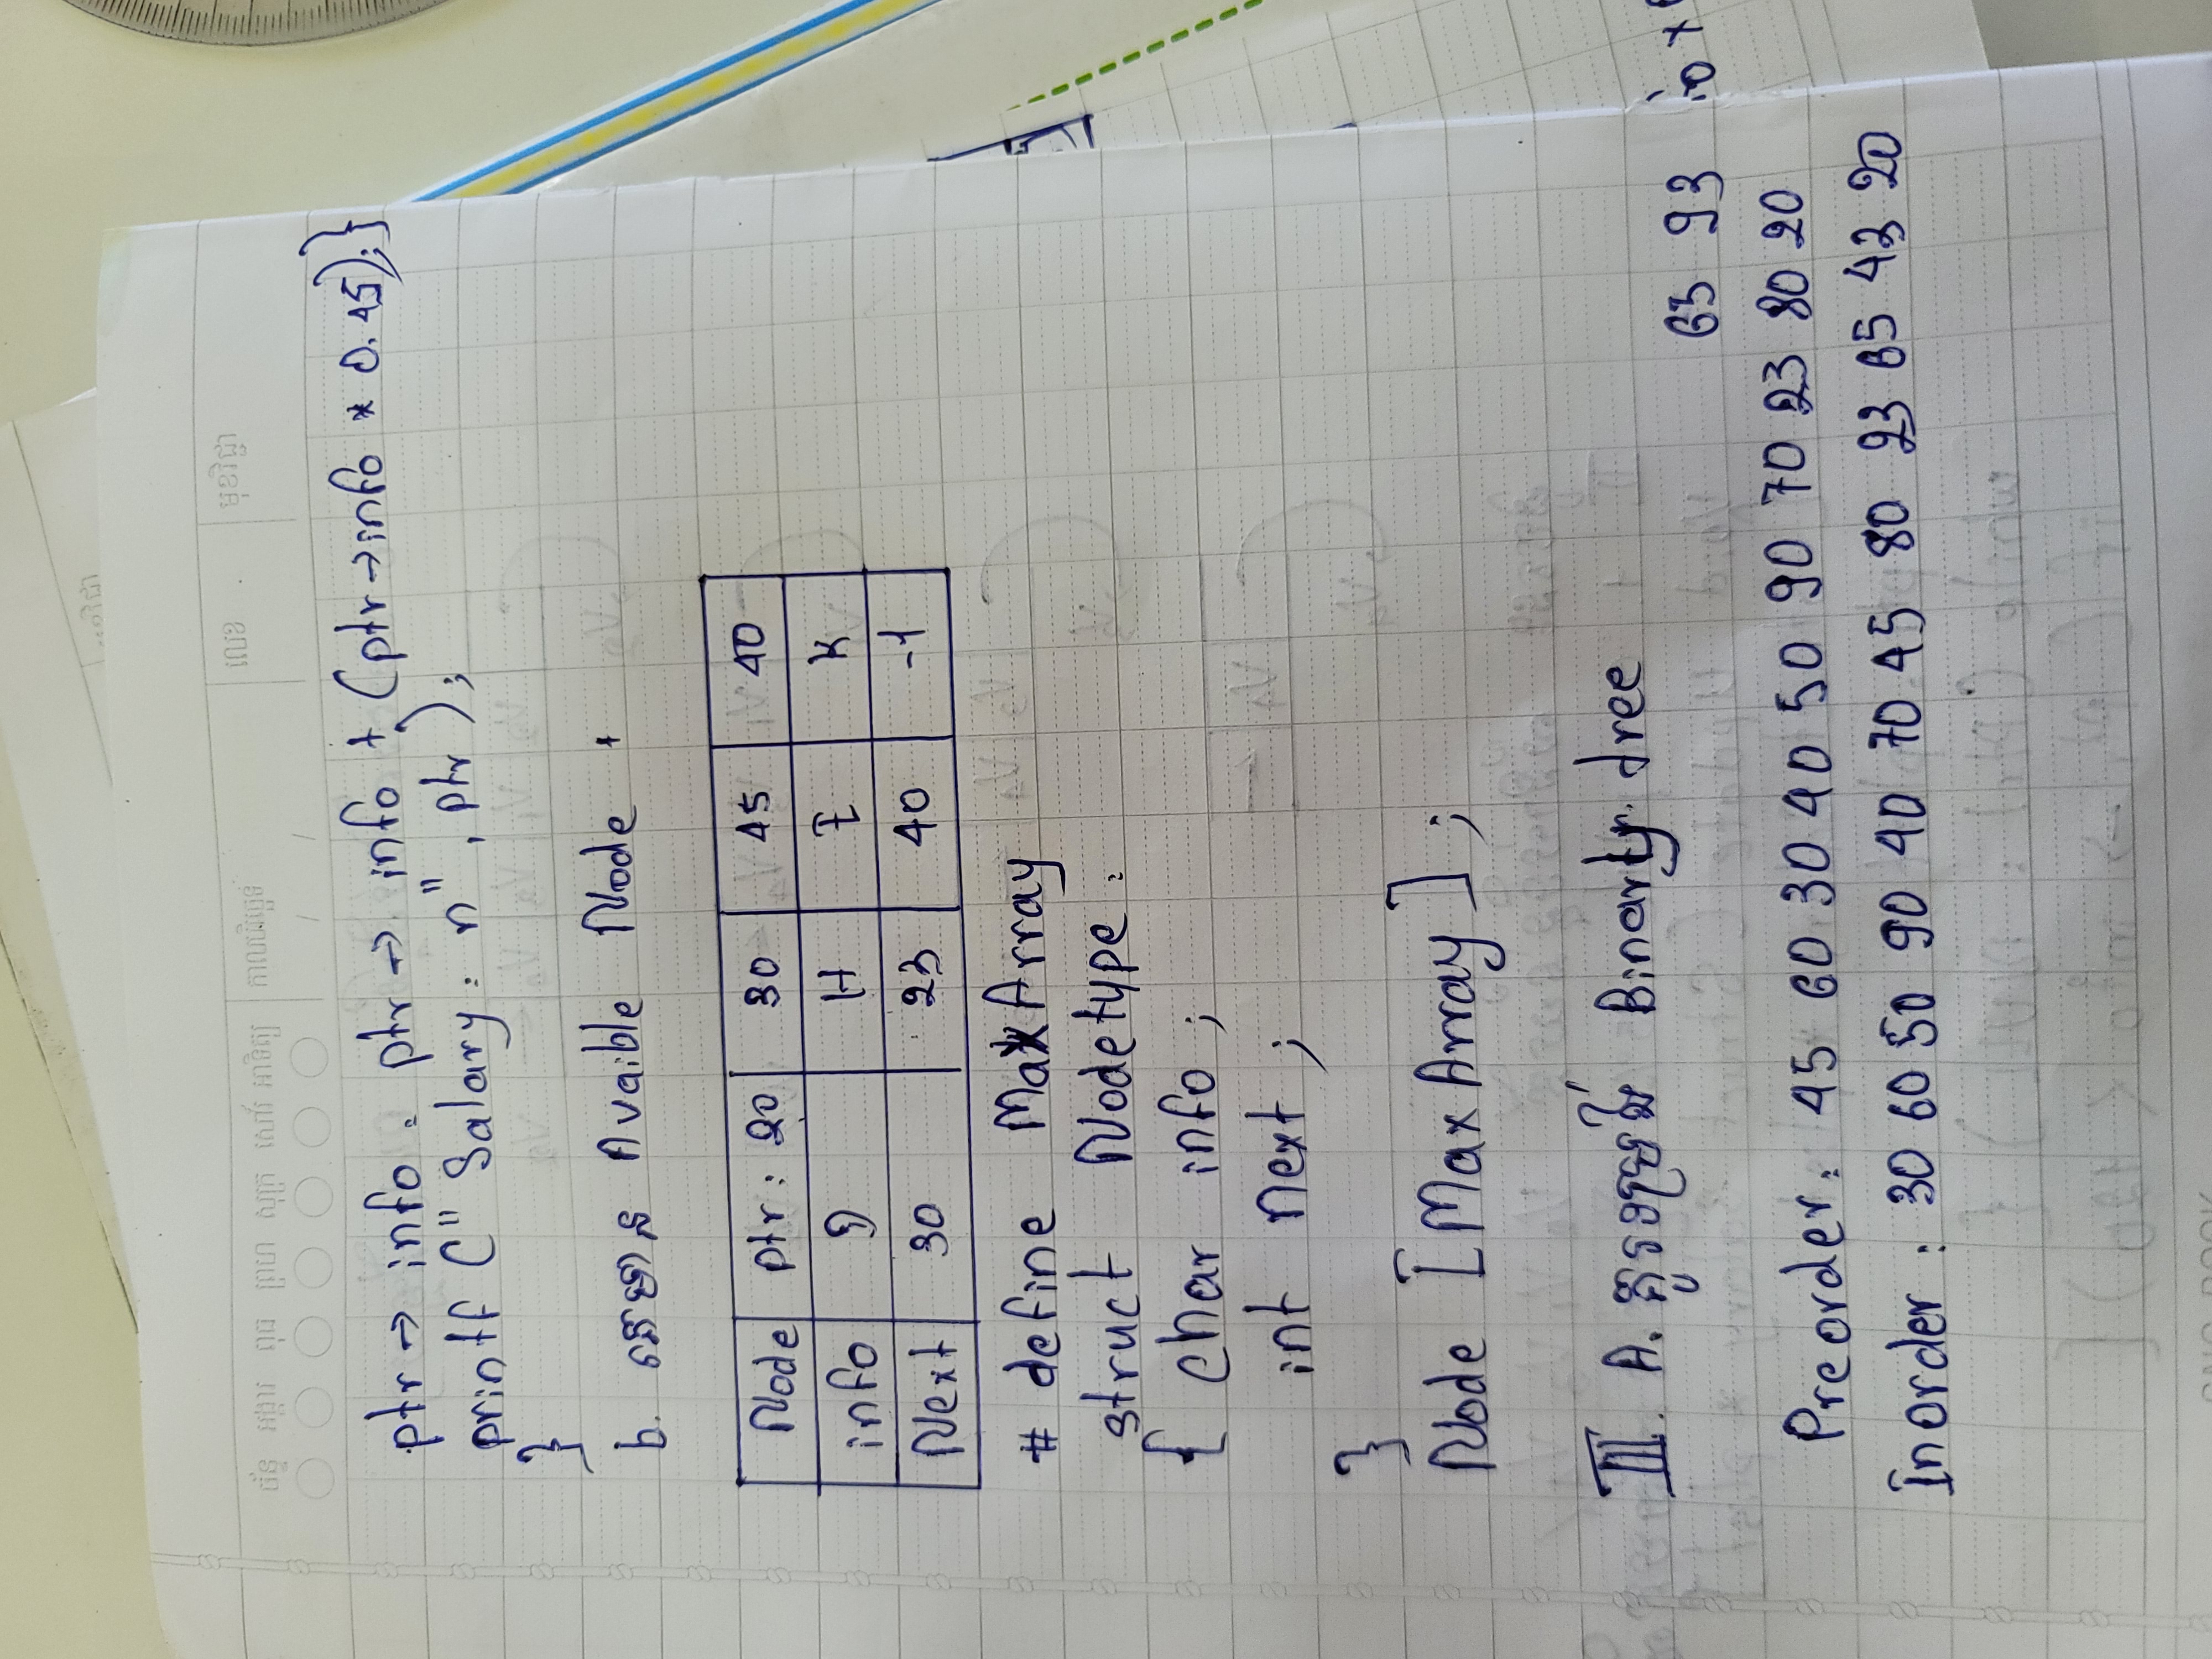 ច័ន្ទ អង្គារ ពុធ ព្រហ សុក្រ សៅរ៍ អាទិត្យ កាលបរិច្ឆេទ / / លេខ មុខវិជ្ជា
ptr → info = ptr → info + (ptr→info * 0.45);}
printf (" Salary : n" , ptr );
}
b. គេមាន Avaible Node +
Node ptr : 20 30 45 40
info D H E K
Next 30 23 40 -1
# define MaxArray
struct Nodetype :
{ char info ;
int next ;
}
Node [MaxArray] ;
III. A. គូរទម្រង់ Binary tree
63 93
Preorder : 45 60 30 40 50 90 70 23 80 20
Inorder : 30 60 50 90 40 70 45 80 23 65 43 20